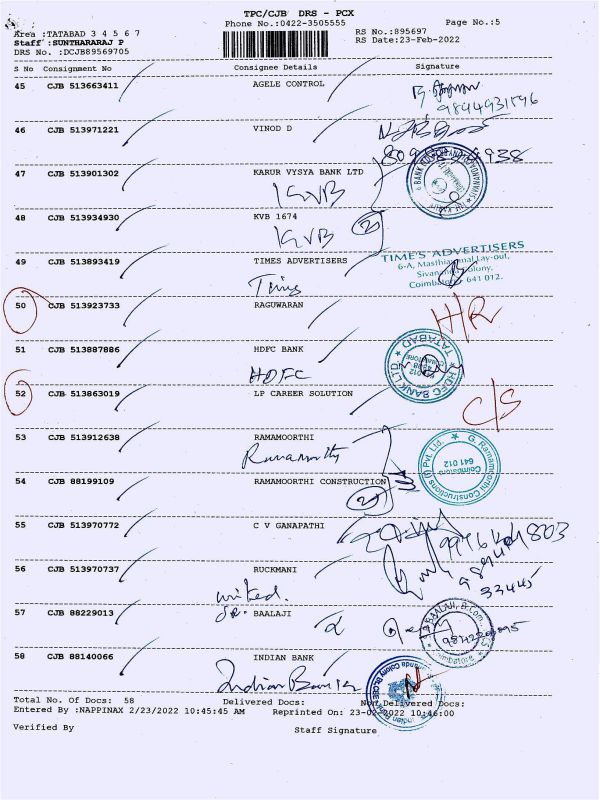 TPC/CJB DRS - PCX
Phone No.:0422-3505555 Page No.:5
Area :TATABAD 3 4 5 6 7 RS No.:895697
Staff :SUNTHARARAJ P RS Date:23-Feb-2022
DRS No. :DCJB89569705
S No Consignment No Consignee Details Signature
45 CJB 513663411 AGELE CONTROL
9844931596
46 CJB 513971221 VINOD D
47 CJB 513901302 KARUR VYSYA BANK LTD
KVB
48 CJB 513934930 KVB 1674
KVB 2
49 CJB 513893419 TIMES ADVERTISERS
TIME'S ADVERTISERS
6-A, Masthiammal Lay-out,
Colony,
641 012.
Times
50 CJB 513923733 RAGUWARAN
H/R
51 CJB 513887886 HDFC BANK
HDFC
HDFC BANK LTD TATABAD
52 CJB 513863019 LP CAREER SOLUTION
C/S
53 CJB 513912638 RAMAMOORTHI
Ramamoorthy
G. Ramamoorthi Constructions (I) Pvt. Ltd.
Coimbatore
641 012
54 CJB 88199109 RAMAMOORTHI CONSTRUCTION
2
55 CJB 513970772 C V GANAPATHI
56 CJB 513970737 RUCKMANI
33445
57 CJB 88229013 BAALAJI
BAALAJI, B.Com.,
Coimbatore
58 CJB 88140066 INDIAN BANK
Indian Bank
Total No. Of Docs: 58 Delivered Docs: Non Delivered Docs:
Entered By :NAPPINAX 2/23/2022 10:45:45 AM Reprinted On: 23-02-2022 10:46:00
Verified By Staff Signature